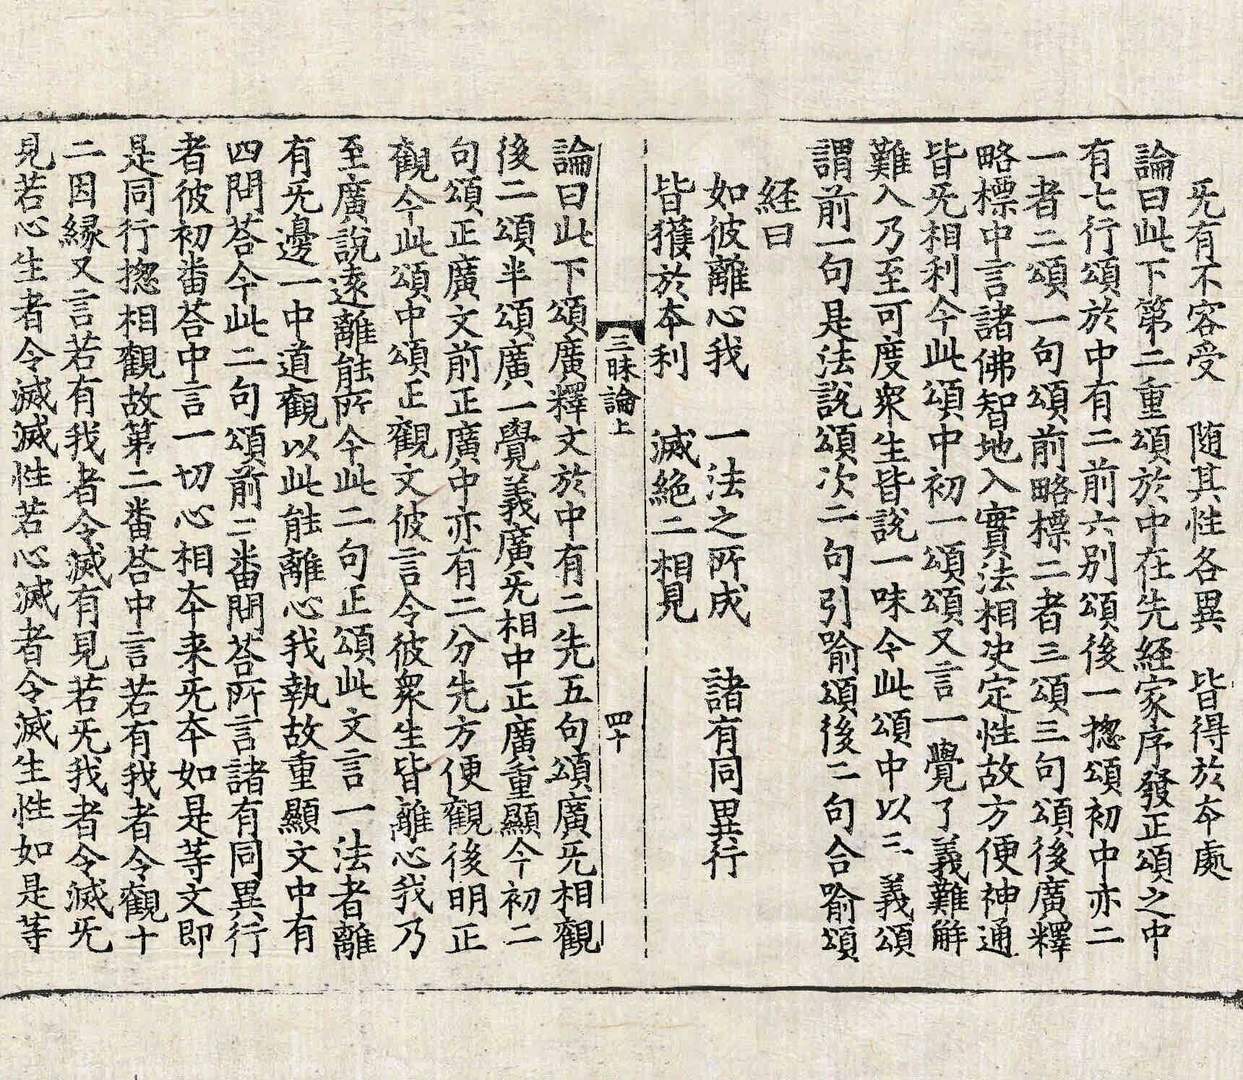 旡有不容受 随其性各異 皆得於夲處
論曰此下第二重頌於中在先経家序發正頌之中
有七行頌於中有二前六別頌後一揔頌初中亦二
一者二頌一句頌前略標二者三頌三句頌後廣釋
略標中言諸佛智地入實法相決定性故方便神通
皆旡相利今此頌中初一頌頌又言一覺了義難解
難入乃至可度衆生皆說一味今此頌中以三義頌
謂前一句是法說頌次二句引喻頌後二句合喻頌
経曰
如彼離心我 一法之所成 諸有同異行
皆獲於夲利 滅絶二相見
三昧論上 四十
論曰此下頌廣釋文於中有二先五句頌廣旡相觀
後二頌半頌廣一覺義廣旡相中正廣重顯今初二
句頌正廣文前正廣中亦有二分先方便觀後明正
觀今此頌中頌正觀文彼言令彼衆生皆離心我乃
至廣說遠離能所今此二句正頌此文言一法者離
有旡邊一中道觀以此能離心我執故重顯文中有
四問荅今此二句頌前二番問荅所言諸有同異行
者彼初番荅中言一切心相夲来旡夲如是等文即
是同行揔相觀故第二番荅中言若有我者令觀十
二因縁又言若有我者令滅有見若旡我者令滅旡
見若心生者令滅滅性若心滅者令滅生性如是等